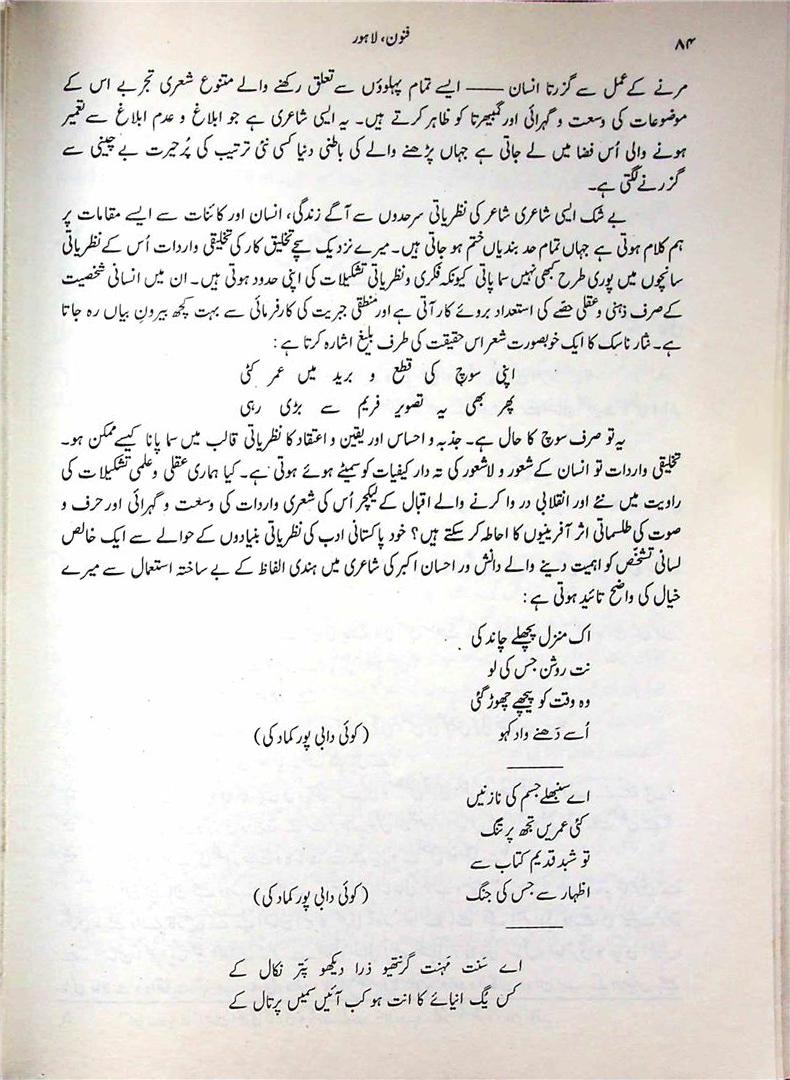 ۸۴
فنون، لاہور
مرنے کے عمل سے گزرتا انسان —— ایسے تمام پہلوؤں سے تعلق رکھنے والے متنوع شعری تجربے اس کے
موضوعات کی وسعت و گہرائی اور گمبھیرتا کو ظاہر کرتے ہیں۔ یہ ایسی شاعری ہے جو ابلاغ و عدم ابلاغ سے تعمیر
ہونے والی اُس فضا میں لے جاتی ہے جہاں پڑھنے والے کی باطنی دنیا کسی نئی ترتیب کی پُر حیرت بے چینی سے
گزرنے لگتی ہے۔
بے شک ایسی شاعری شاعر کی نظریاتی سرحدوں سے آگے زندگی، انسان اور کائنات سے ایسے مقامات پر
ہم کلام ہوتی ہے جہاں تمام حد بندیاں ختم ہو جاتی ہیں۔ میرے نزدیک سچے تخلیق کار کی تخلیقی واردات اُس کے نظریاتی
سانچوں میں پوری طرح کبھی نہیں سما پاتی کیونکہ فکری و نظریاتی تشکیلات کی اپنی حدود ہوتی ہیں۔ ان میں انسانی شخصیت
کے صرف ذہنی و عقلی حصّے کی استعداد بروئے کار آتی ہے اور منطقی جبریت کی کارفرمائی سے بہت کچھ بیرونِ بیاں رہ جاتا
ہے۔ نثار ناسک کا ایک خوبصورت شعر اس حقیقت کی طرف بلیغ اشارہ کرتا ہے:
اپنی سوچ کی قطع و برید میں عمر کٹی
پھر بھی یہ تصویر فریم سے بڑی رہی
یہ تو صرف سوچ کا حال ہے۔ جذبہ و احساس اور یقین و اعتقاد کا نظریاتی قالب میں سما پانا کیسے ممکن ہو۔
تخلیقی واردات تو انسان کے شعور و لاشعور کی تہ دار کیفیات کو سمیٹے ہوئے ہوتی ہے۔ کیا ہماری عقلی و علمی تشکیلات کی
راویت میں نئے اور انقلابی در وا کرنے والے اقبال کے لیکچر اُس کی شعری واردات کی وسعت و گہرائی اور حرف و
صوت کی طلسماتی اثر آفرینوں کا احاطہ کر سکتے ہیں؟ خود پاکستانی ادب کی نظریاتی بنیادوں کے حوالے سے ایک خالص
لسانی تشخّص کو اہمیت دینے والے دانش ور احسان اکبر کی شاعری میں ہندی الفاظ کے بے ساختہ استعمال سے میرے
خیال کی واضح تائید ہوتی ہے:
اک منزل پچھلے چاند کی
نت روشن جس کی لو
وہ وقت کو پیچھے چھوڑ گئی
اُسے دَھنے واد کہو (کوئی دابی پور کماد کی)
اے سنبھلے جسم کی نازنیں
کئی عمریں تجھ پر تنگ
تو شبد قدیم کتاب سے
اظہار سے جس کی جنگ (کوئی دابی پور کماد کی)
اے سَنت مَہنت گرنتھیو ذرا دیکھو پَتر نکال کے
کس یُگ انیائے کا انت ہو کب آئیں سَمیں پرتال کے